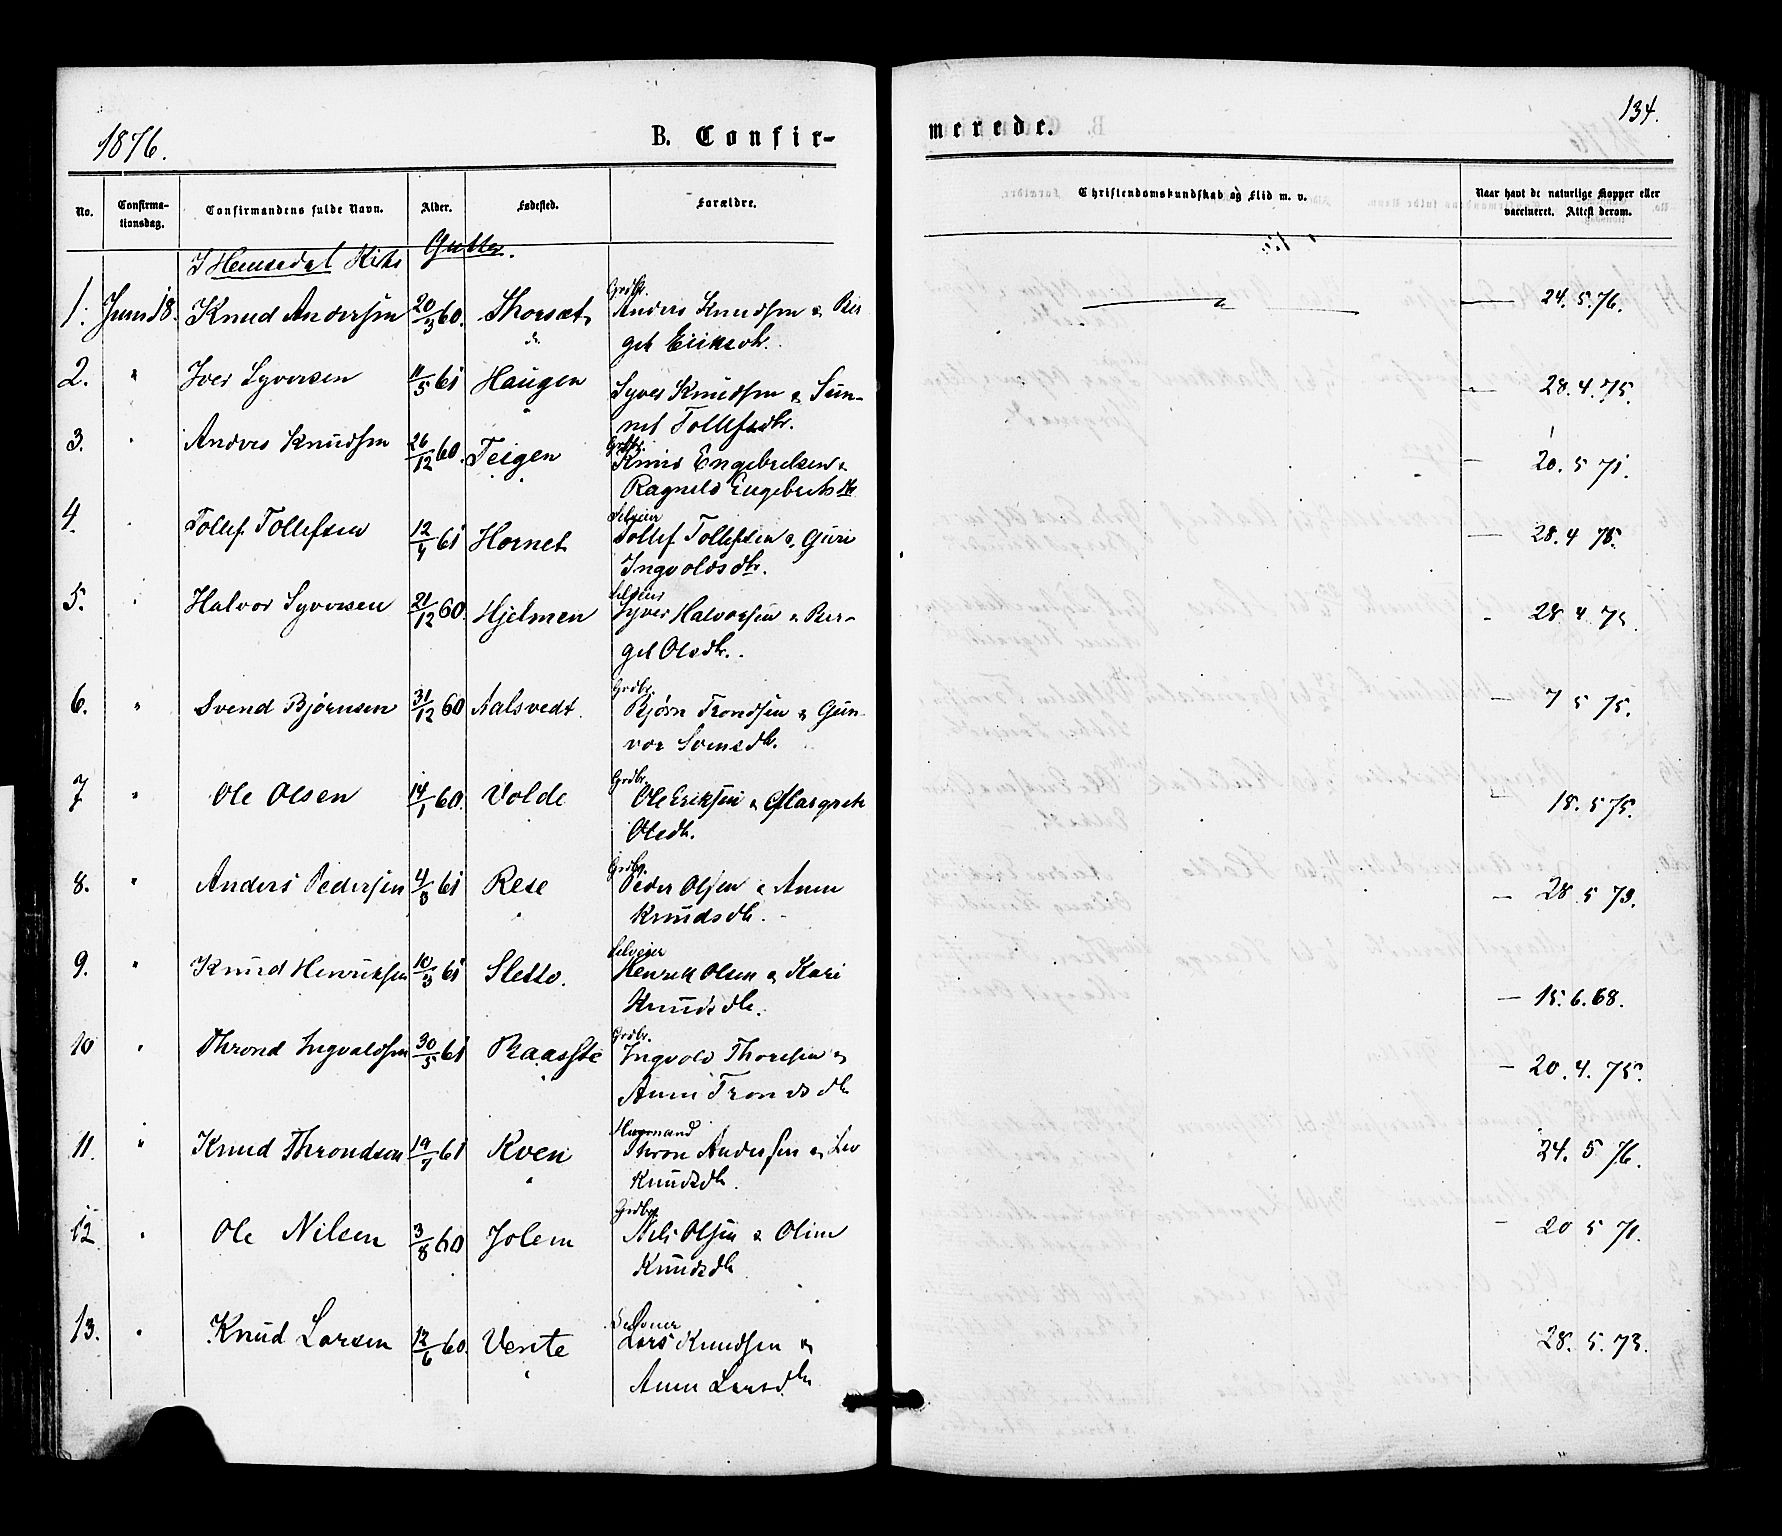 1876.
B. Confir-
merede.
134.
No.
Confirma-
tionsdag.
Confirmandens fulde Navn.
Alder.
Fødested.
Forældre.
Christendomskundskab og Flid m. v.
Naar havt de naturlige Kopper eller
vaccineret. Attest derom.
I Hemsedal Kirke Gutter.
1. Juni 18. Knud Andersen 20/3 60. Thorset Grdbr. Anders Knudsen & Ber
get Eriksdtr. 24.5.76.
2. " Iver Syversen 11/5 61 Haugen Syver Knudsen & Sun-
net Tollefsdtr. 28.4.75.
3. " Anders Knudsen 26/12 60. Teigen Grdbr. Knud Engebretsen &
Ragnild Engebretsdtr 20.5 71.
4. Tollef Tollefsen 12/4 61 Hornet Selveier Tollef Tollefsen & Guri
Ingvoldsdtr. 28.4 75.
5. " Halvor Syversen 21/12 60. Hjelmen Selveier Syver Halvorsen & Ber-
get Olsdtr. 28 4 75.
6. " Svend Bjørnsen 31/12 60 Aalsvedt. Grdbr. Bjørn Trondsen & Gun-
vor Svensdtr. 7 5 75.
7 " Ole Olsen 14/1 60. Volde Grdbr. Ole Eriksen & Margreth
Olsdtr. 18.5 75.
8. " Anders Pedersen 4/3 61 Rese Grdbr. Peder Olsen & Anne
Knudsdtr. 28.5 73.
9. " Knud Henriksen 10/3 61 Sletto. Selveier Henrik Olsen & Kari
Knudsdtr. 15.6.68.
10 " Thrond Ingvaldsen 30/5 61 Grdbr. Ingvold Thoresen &
Anne Trondsdtr 20.4.75.
11. " Knud Throndson 19/7 61 Kven Thron Andersen &
Knudsdtr. 24. 5 76.
12 " Ole Nilsen 3/8 60 Jolem Grdbr. Nils Olsen & Oline
Knudsdtr 20 5 71.
13. " Knud Larsen 12/6 60. Vente Selveier Lars Knudsen &
Anne Larsdtr 28.5.73.